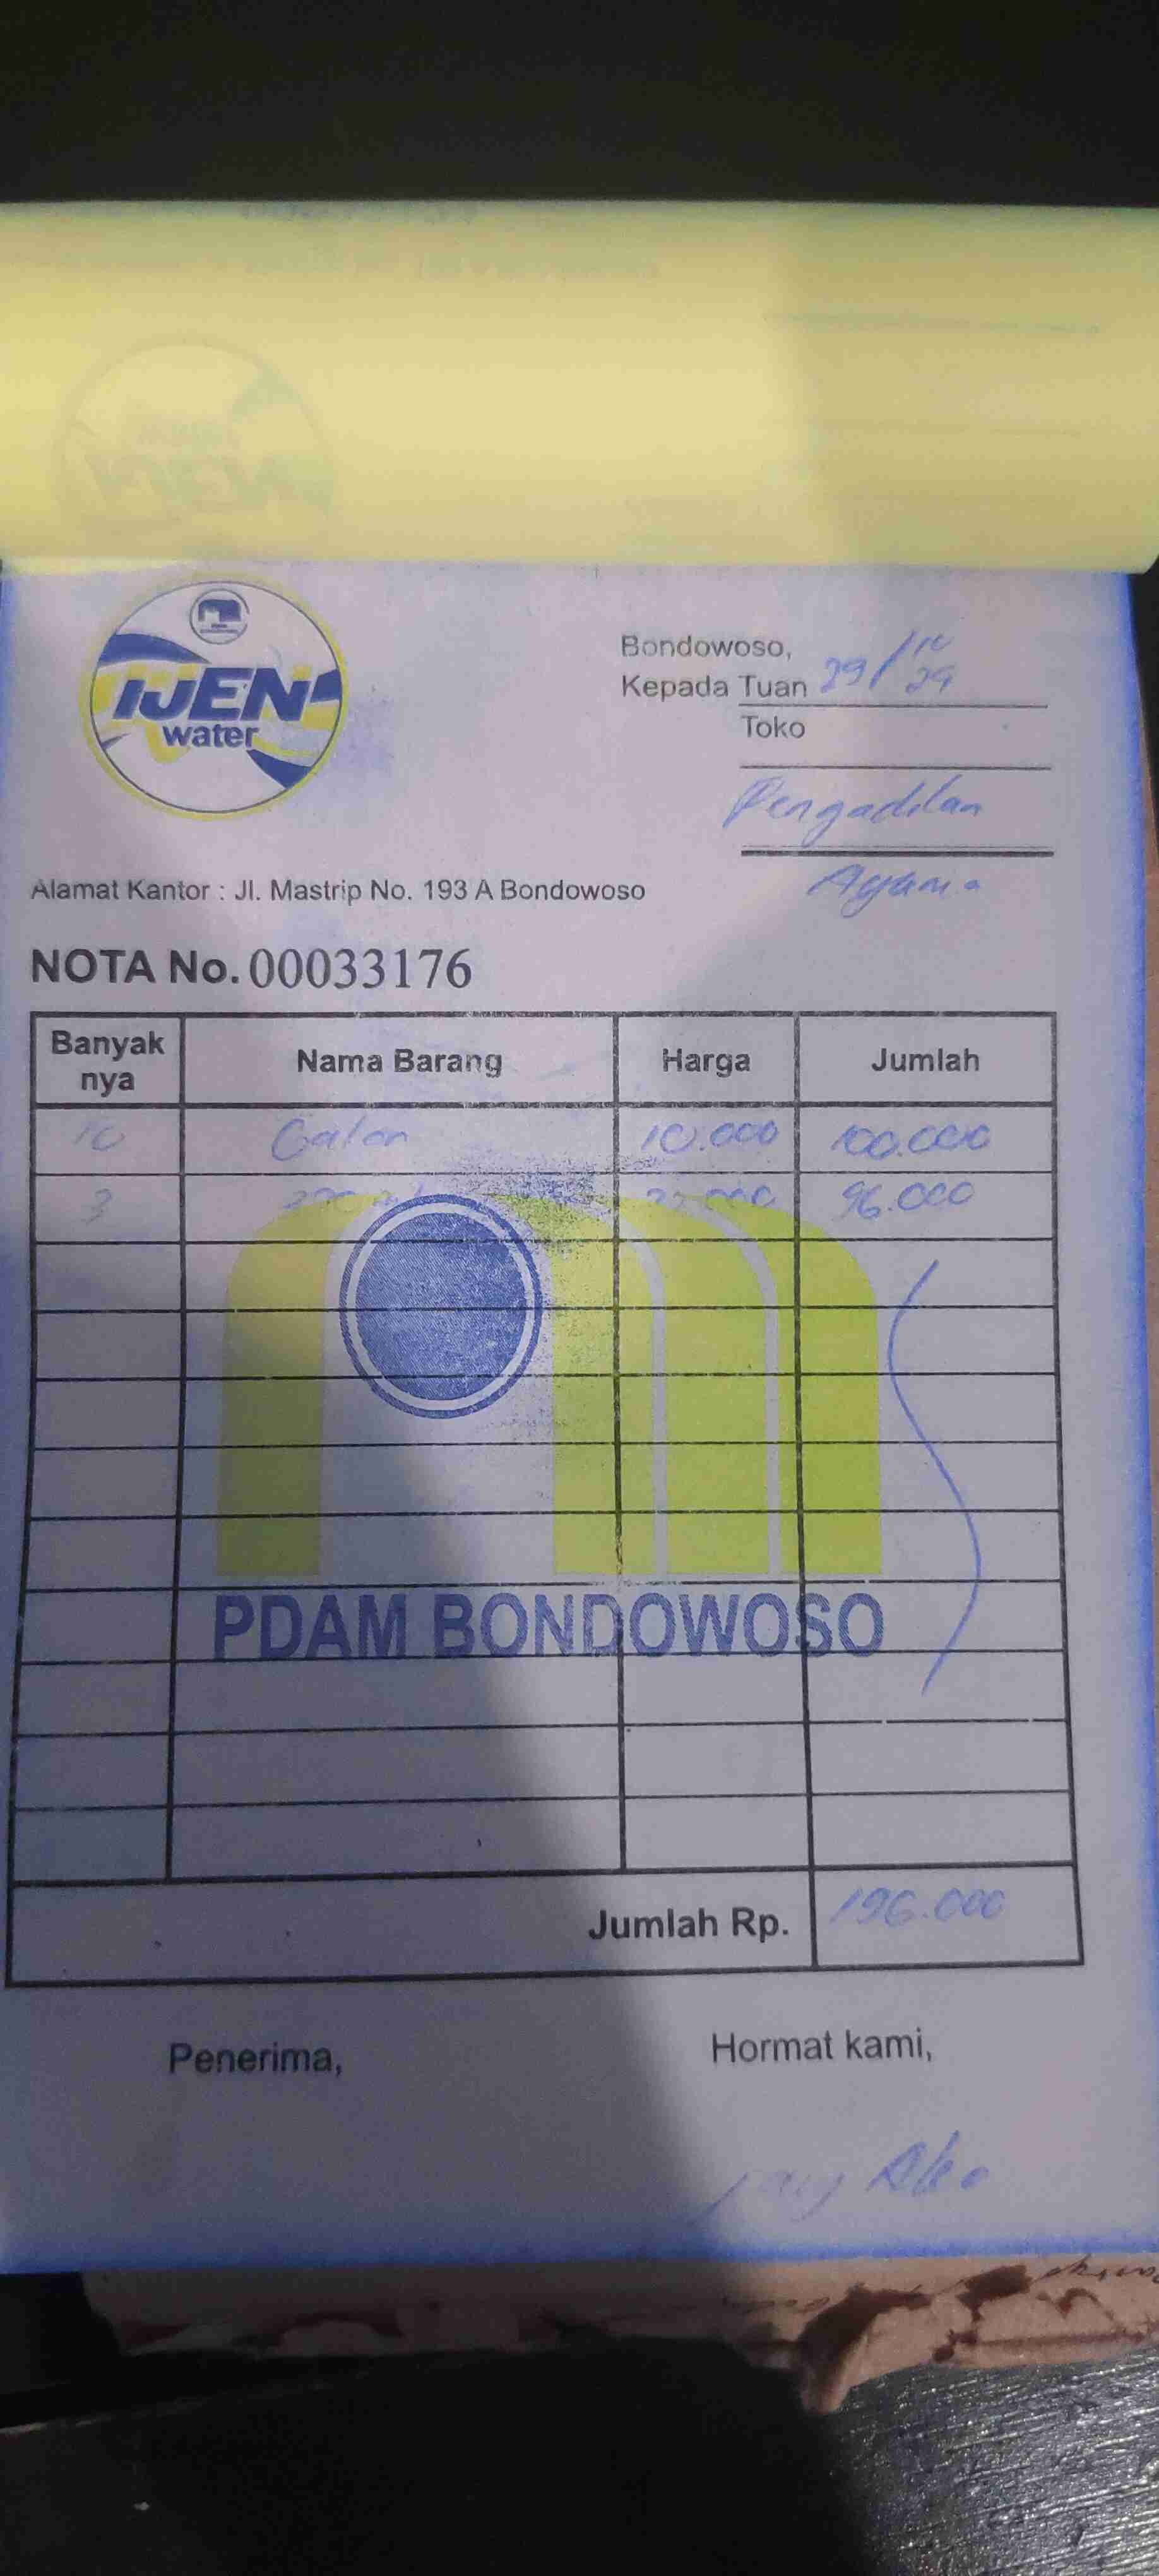 IJEN
water
Bondowoso,
29/10
24
Kepada Tuan
Toko
Pengadilan
Agama
Alamat Kantor : Jl. Mastrip No. 193 A Bondowoso
NOTA No. 00033176
Banyak nya Nama Barang Harga Jumlah
10 Galon 10.000 100.000
3 96.000
PDAM BONDOWOSO
Jumlah Rp. 196.000
Penerima, Hormat kami,